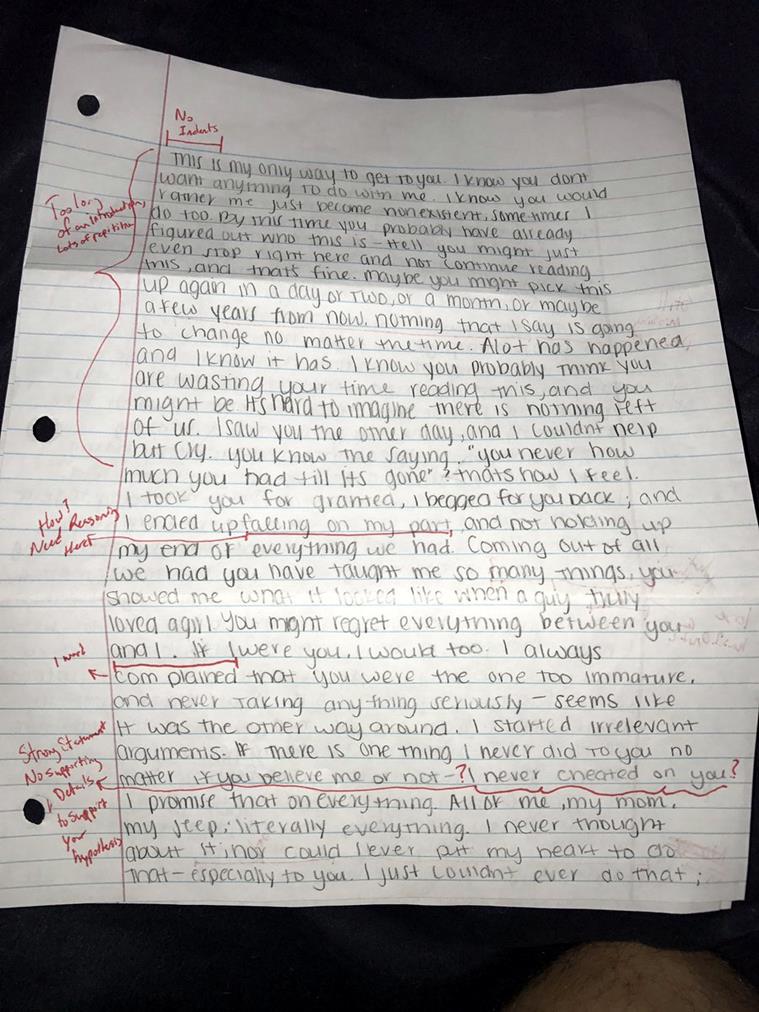 No
Indents
This is my only way to get to you. I know you dont
want anything to do with me. I know you would
rather me just become nonexistent, sometimes I
do too. By this time you probably have already
figured out who this is - Hell you might just
even stop right here and not continue reading
this, and that's fine. maybe you might pick this
up again in a day or two, or a month, or maybe
a few years from now, nothing that I say is going
to change no matter the time. Alot has happened,
and I know it has. I know you probably think you
are wasting your time reading this, and you
might be. It's hard to imagine there is nothing left
of us. I saw you the other day, and I couldnt help
but cry. you know the saying, "you never how
much you had till its gone"? thats how I feel.
I took you for granted, I begged for you back; and
I ended up falling on my part, and not holding up
my end of everything we had. Coming out of all
we had you have taught me so many things, you
showed me what it looked like when a guy truly
loved a girl. You might regret everything between you
and I. If I were you, I would too. I always
complained that you were the one too immature,
and never taking anything seriously - seems like
it was the other way around. I started irrelevant
arguments. If there is one thing I never did to you no
matter if you believe me or not -? I never cheated on you?
I promise that on everything. All of me, my mom,
my jeep; literally everything. I never thought
about it; nor could I ever put my heart to do
that - especially to you. I just couldnt ever do that;
Too long
of an introduction,
Lots of repitition
How?
Need Reasoning
Here
1 word
Strong Statement
No supporting
Details
to support
your
hypothesis